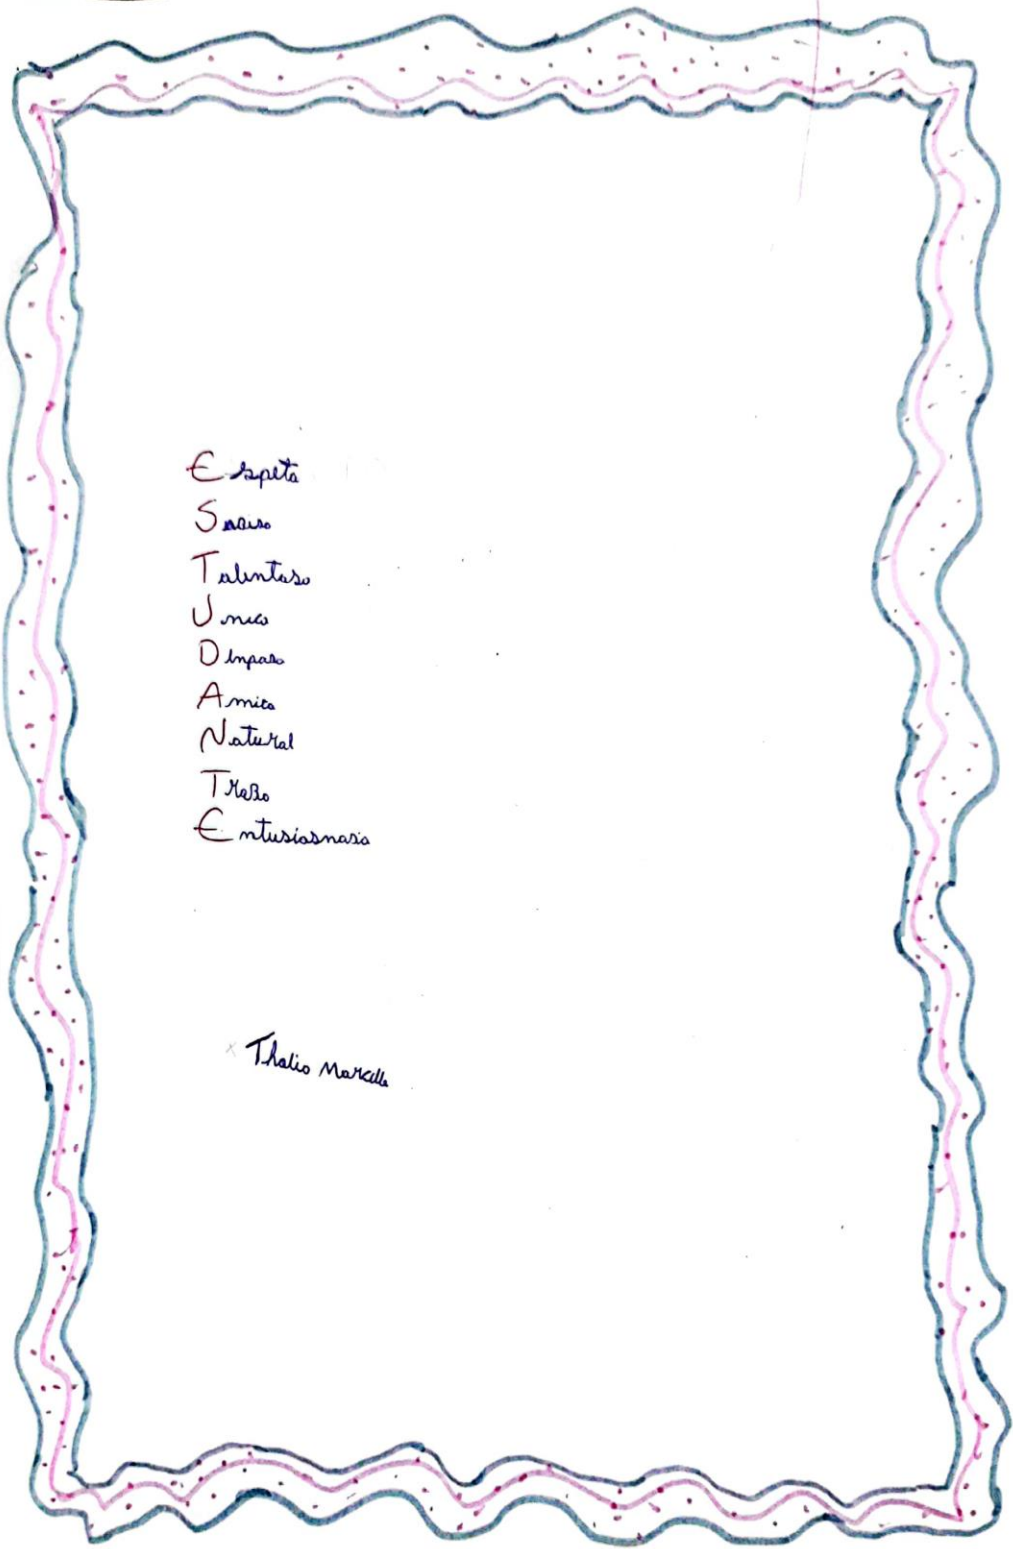 Espeta
Soriso
Talentoso
Unico
D
Amico
Natural
Trazo
Entusiasnasia
Thalio Marcello